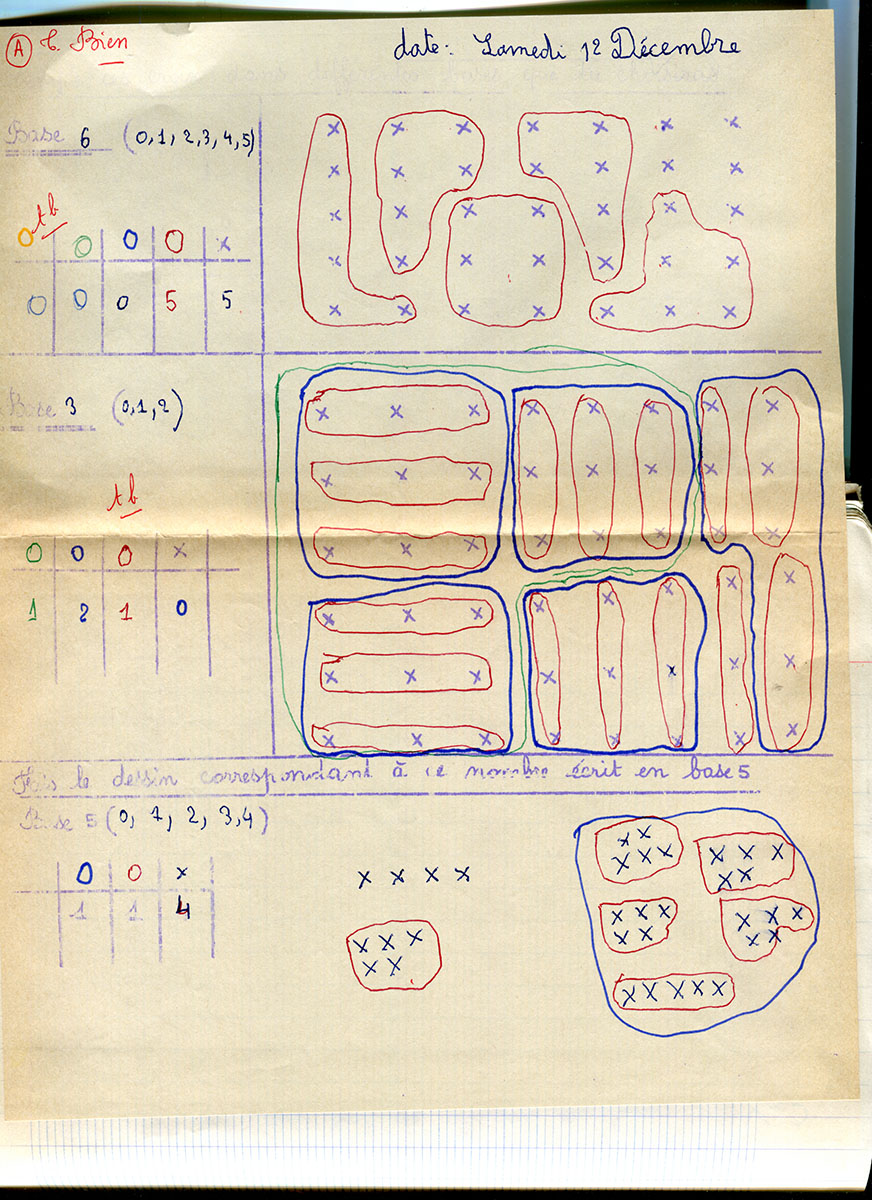 A t. Bien
date: Samedi 12 Décembre
Base 6 (0, 1, 2, 3, 4, 5)
tb
0 0 0 0 x
0 0 0 5 5
Base 3 (0, 1, 2)
tb
0 0 0 x
1 2 1 0
Fais le dessin correspondant à ce nombre écrit en base 5
Base 5 (0, 1, 2, 3, 4)
0 0 x
1 1 4